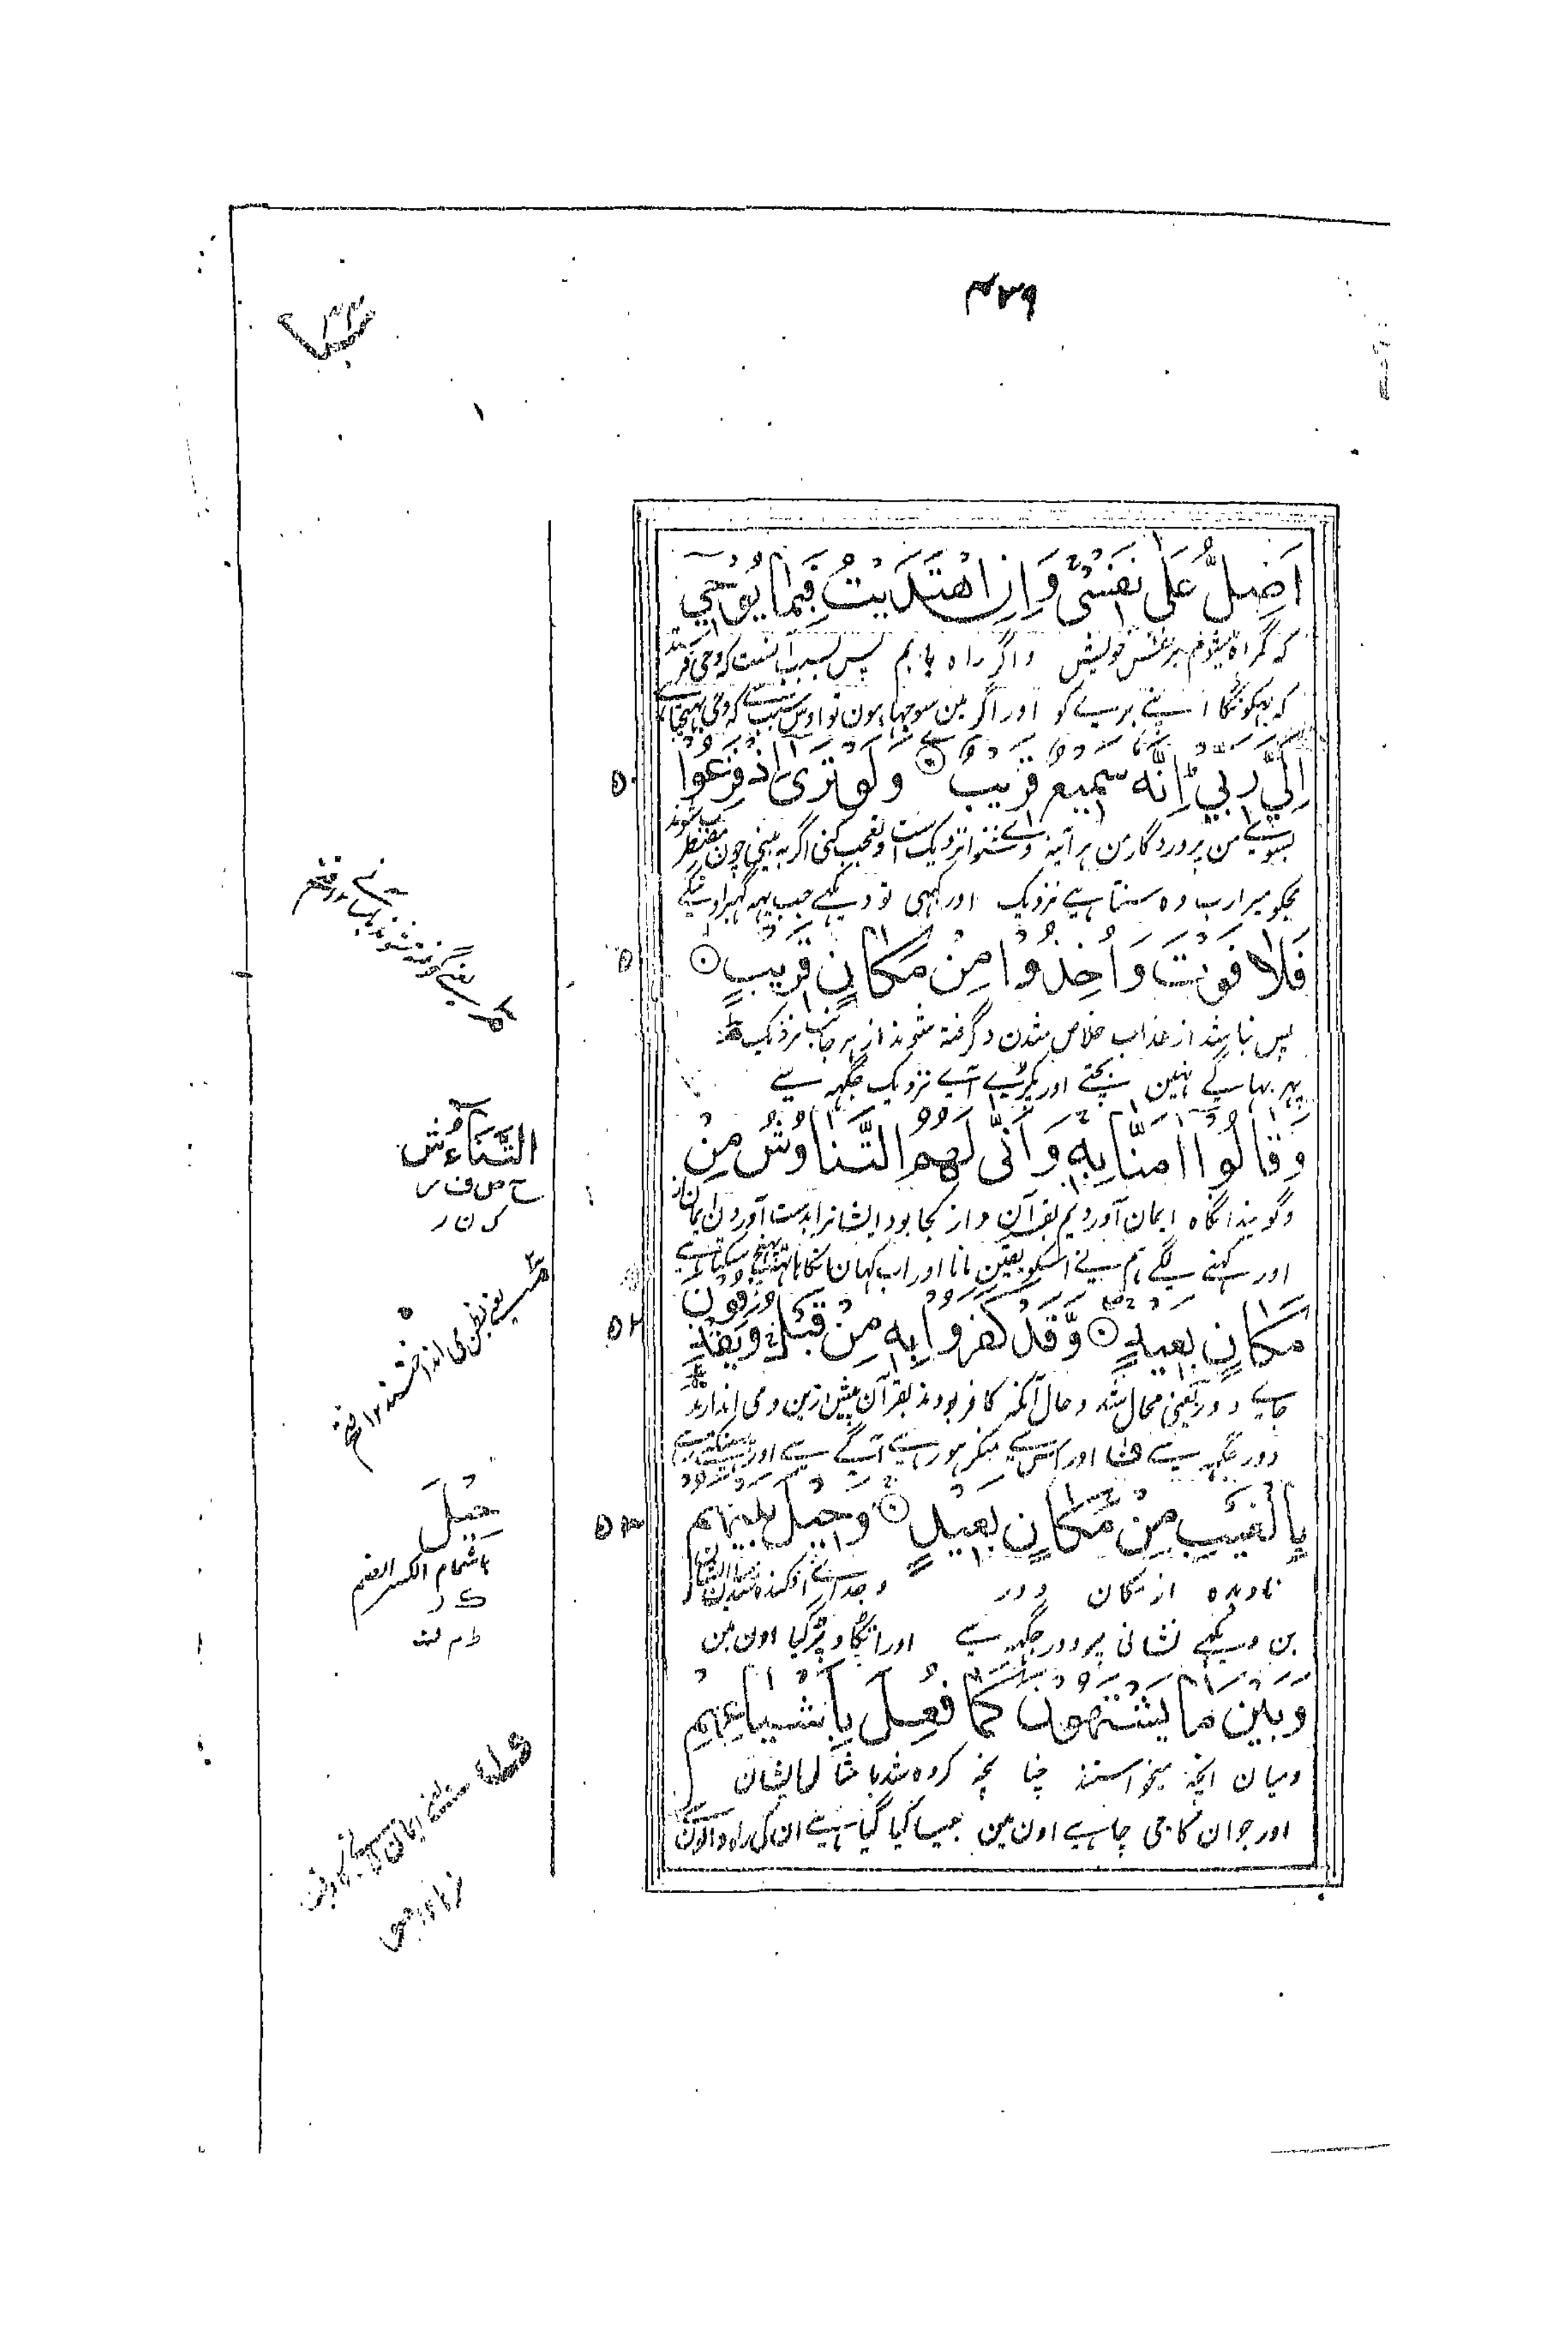 ۴۳۹
اَضِلُّ عَلٰى نَفْسِیْ وَاِنِ اهْتَدَیْتُ فَبِمَا یُوْحِیْ
که گمراه میشوم بر نفس خویش واگر راه یابم پس بسبب آنست که وحی
که بہکونگا اپنے برے کو اور اگر مین سوجہا ہون تو اوس سبب کہ وحی
اِلَیَّ رَبِّیْ اِنَّهٗ سَمِیْعٌ قَرِیْبٌ وَلَوْ تَرٰى اِذْ فَزِعُوْا
۵۰
بسوے من پروردگار من ہر آئینہ وے شنوا نزدیک است و تعجب کنی اگر بہ بینی چون مضطرب شوند
مجکو میرا رب وہ سنتا ہے نزدیک اور کبہی تو دیکہے جب یہہ گہبراوینگے
فَلَا فَوْتَ وَاُخِذُوْا مِنْ مَّكَانٍ قَرِیْبٍ
پس نباشد از عذاب خلاص شدن و گرفته شوند از ہر جانب نزدیک
پہر بہاگے نہین بچتے اور پکڑے آے نزدیک جگہہ سے
وَقَالُوْا اٰمَنَّا بِهٖ وَاَنّٰى لَهُمُ التَّنَاوُشُ مِنْ
وگویند انگاه ایمان آوردیم بقرآن و از کجا بود ایشانرا بدست آوردن ایمان از
اور کہنے لگے ہم نے اسکو یقین مانا اور اب کہان انکا ہاتہہ پہنچ سکتا ہے
مَكَانٍ بَعِیْدٍ وَّقَدْ كَفَرُوْا بِهٖ مِنْ قَبْلُ وَیَقْذِفُوْنَ
۵۲
جاے دور یعنی محال شد و حال آنکہ کافر بودند بقرآن پیش ازین و می اندازند
دور جگہہ سے اور اس سے منکر ہو رہے آگے سے اور
بِالْغَیْبِ مِنْ مَّكَانٍ بَعِیْدٍ وَحِیْلَ بَیْنَهُمْ
۵۳
نادیده از مکان دور و جدائے افکنده شد میان ایشان
بن دیکہے نشانی پر دور جگہہ سے اور اٹکاو پڑ گیا اون مین
وَبَیْنَ مَا یَشْتَهُوْنَ كَمَا فُعِلَ بِاَشْیَاعِهِمْ
ومیان انچہ میخواستند چنانچہ کرده شد با مثال ایشان
اور جو ان کا جی چاہے اون مین جیسا کیا گیا ہے ان کی راہ والون
التَّنَاءُش
حِیْلَ
باشمام الکسر الضم